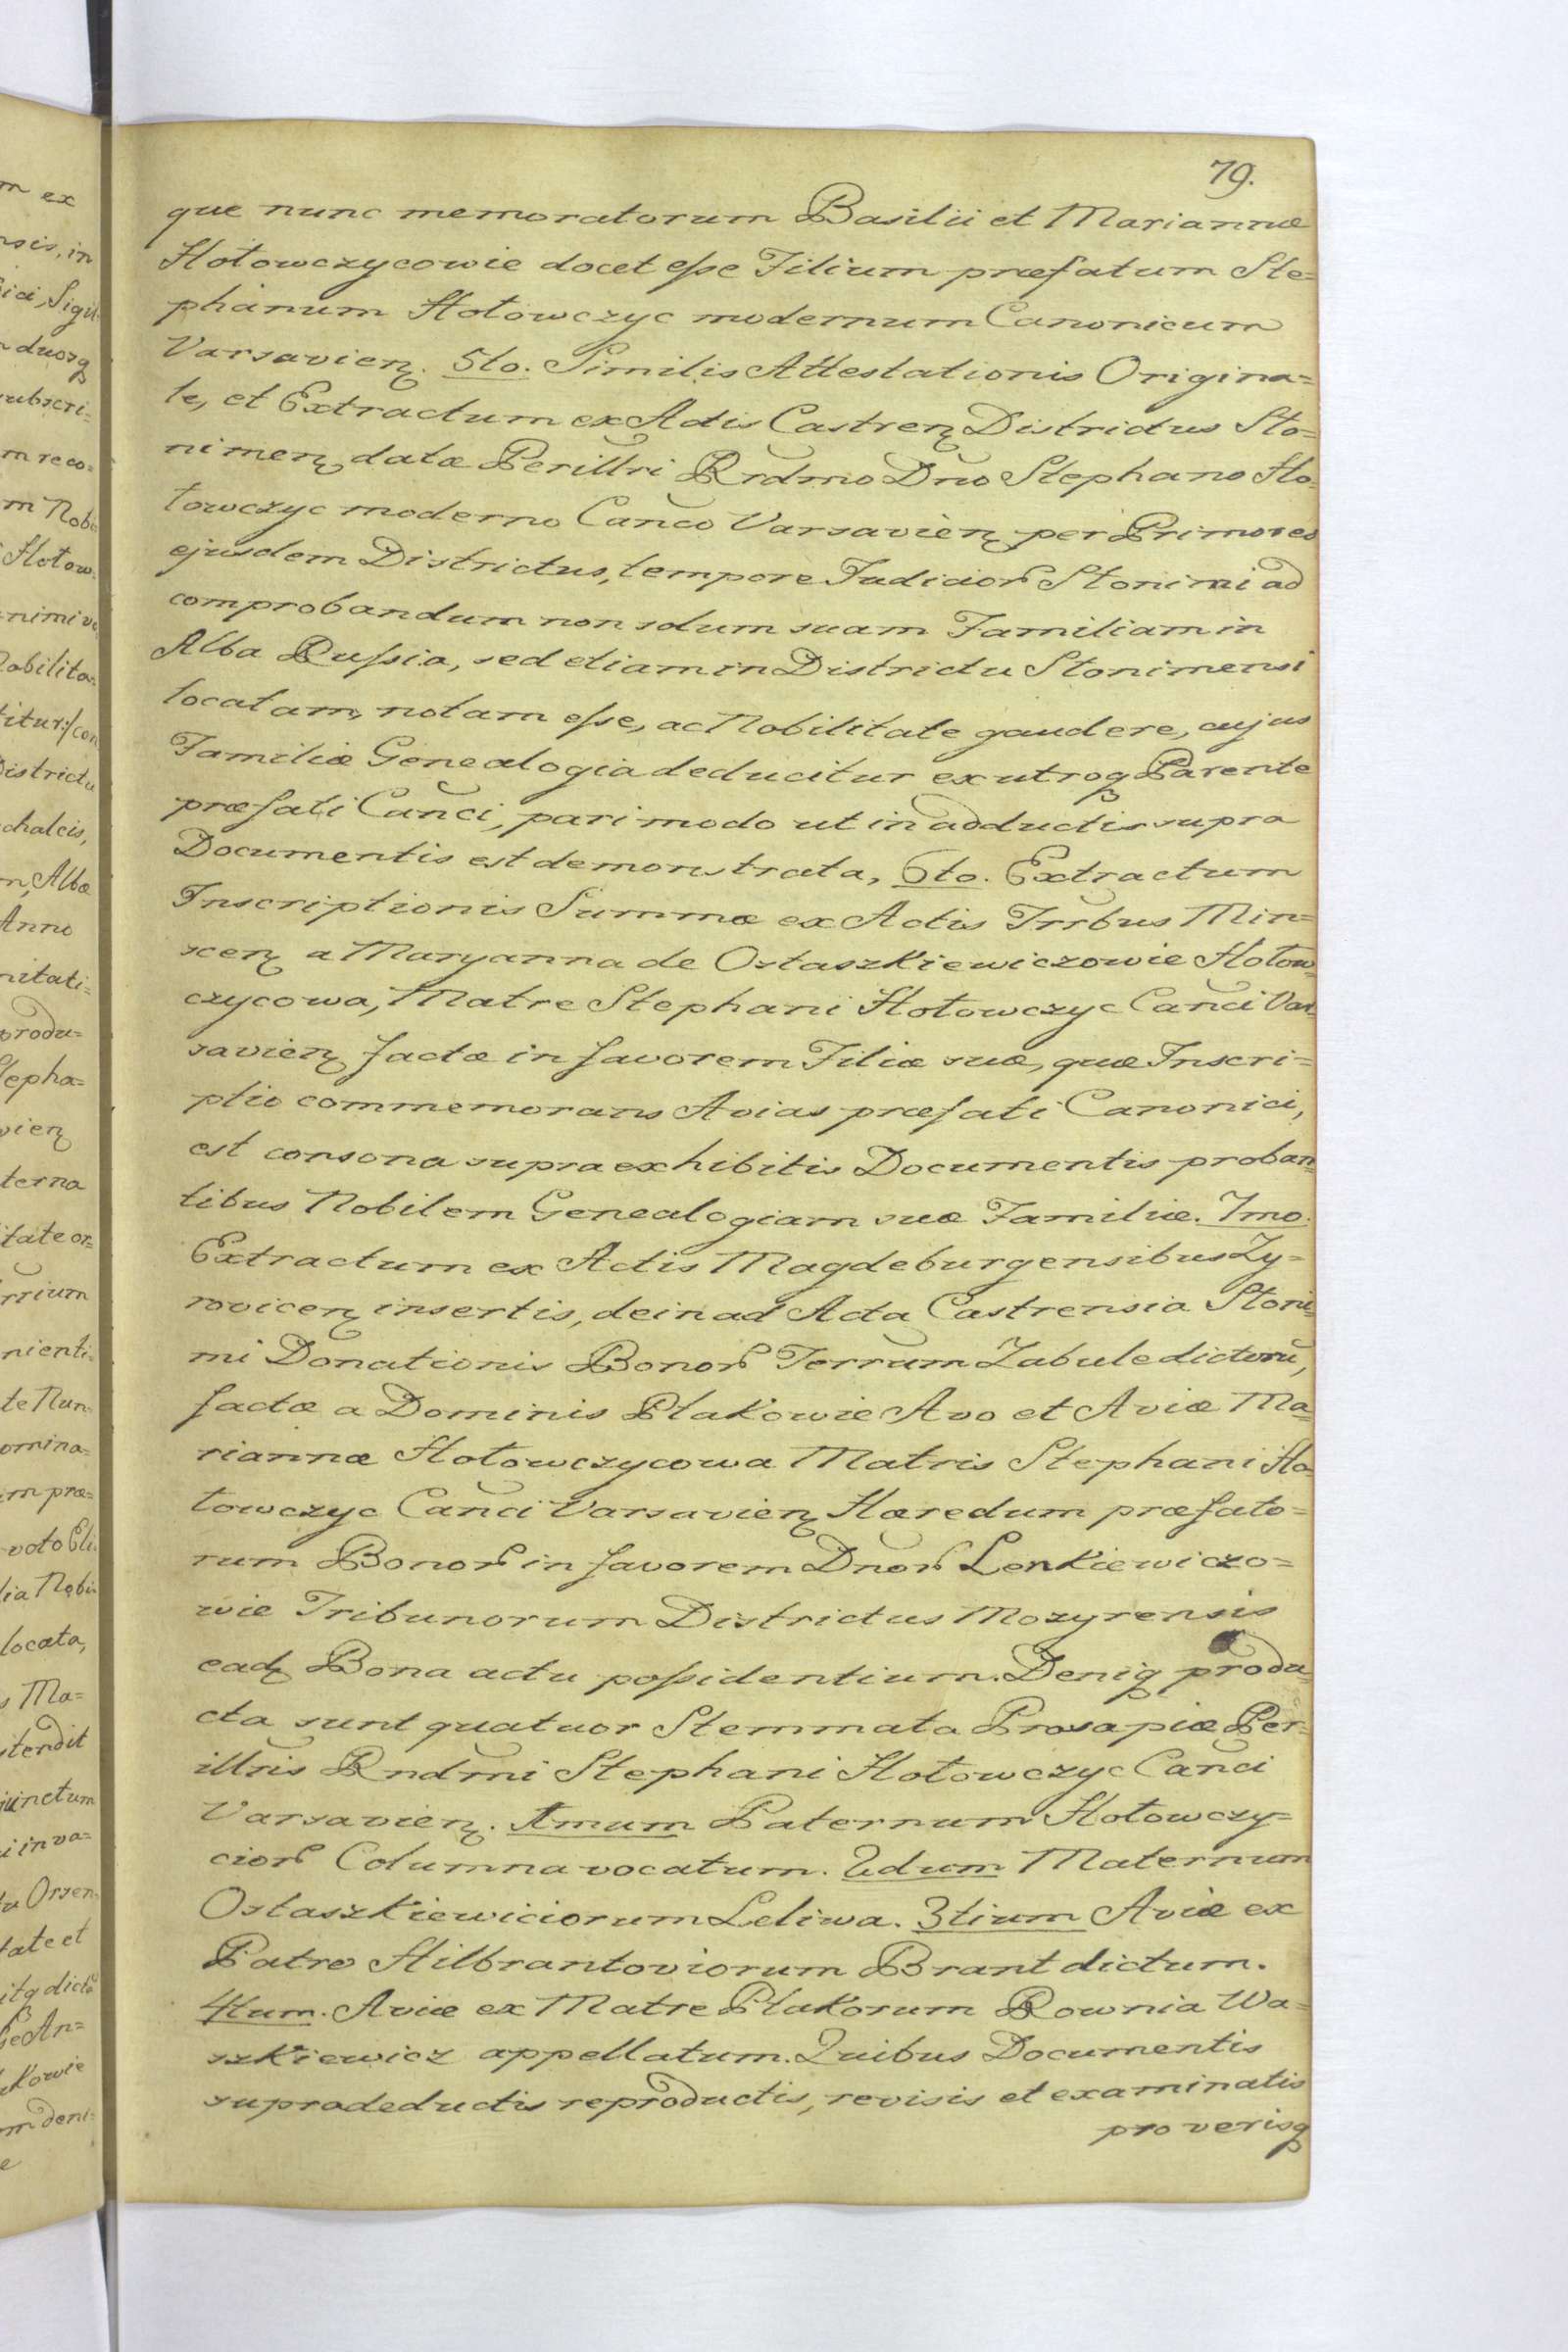 79.
que nunc memoratorum Basilii et Mariannæ
Hołowczycowie docet esse Filium præfatum Ste=
phanum Hołowczyc modernum Canonicum
Varsavien. 5to. Similis Attestationis Origina=
le, et Extractum ex Actis Castren Districtus Sło=
nimen datæ Perillri Rrdmo Dno Stephano Ho=
łowczyc moderno Canco Varsavien per Primores
ejusdem Districtus, tempore Judicior Słonimi ad
comprobandum non solum suam Familiam in
Alba Russia, sed etiam in Districtu Słonimensi
locatam, notam esse, ac Nobilitate gaudere, cujus
Familiæ Genealogia deducitur ex utroq Parente
præfati Canci, pari modo ut in adductis supra
Documentis est demonstrata, 6to. Extractum
Inscriptionis Summæ ex Actis Trrbus Min=
scen a Maryanna de Ostaszkiewiczowie Hołow=
czycowa, Matre Stephani Hołowczyc Canci Var=
savien factæ in favorem Filiæ suæ, quæ Inscri=
ptio commemorans Avias præfati Canonici,
est consona supra exhibitis Documentis proban=
tibus Nobilem Genealogiam suæ Familiæ. 7mo.
Extractum ex Actis Magdeburgensibus Zy=
rovicen insertis, dein ad Acta Castrensia Słoni=
mi Donationis Bonor Terrum Zabule dictoru,
factæ a Dominis Płakowie Avo et Aviæ Ma=
riannæ Hołowczycowa Matris Stephani Ho=
łowczyc Canci Varsavien Hæredum præfato=
rum Bonor in favorem Dnor Lenkiewiczo=
wie Tribunorum Districtus Mozyrensis
ead Bona actu possidentium. Deniq produ=
cta sunt quatuor Stemmata Prosapiæ Per=
illris Rndmi Stephani Hołowczyc Canci
Varsavien. 1mum Paternum Hołowczy=
cior Columna vocatum. 2dum Maternum
Ostaszkiewiciorum Leliwa. 3tium Aviæ ex
Patre Hilbrantoviorum Brant dictum.
4tum. Aviæ ex Matre Płakorum Rownia Wa=
szkiewicz appellatum. Quibus Documentis
supradeductis reproductis, revisis et examinatis
pro verisq